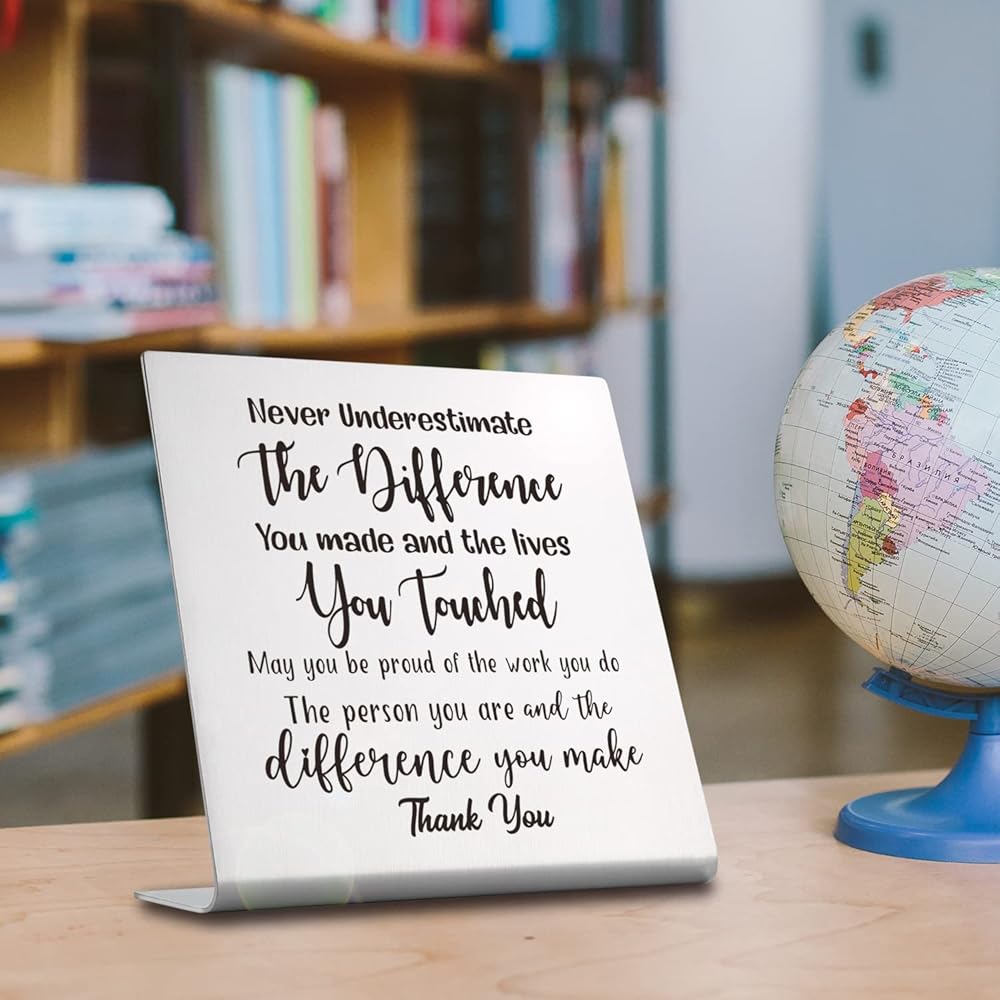 Never Underestimate
The Difference
You made and the lives
You Touched
May you be proud of the work you do
The person you are and the
difference you make
Thank You
БРАЗИЛИЯ